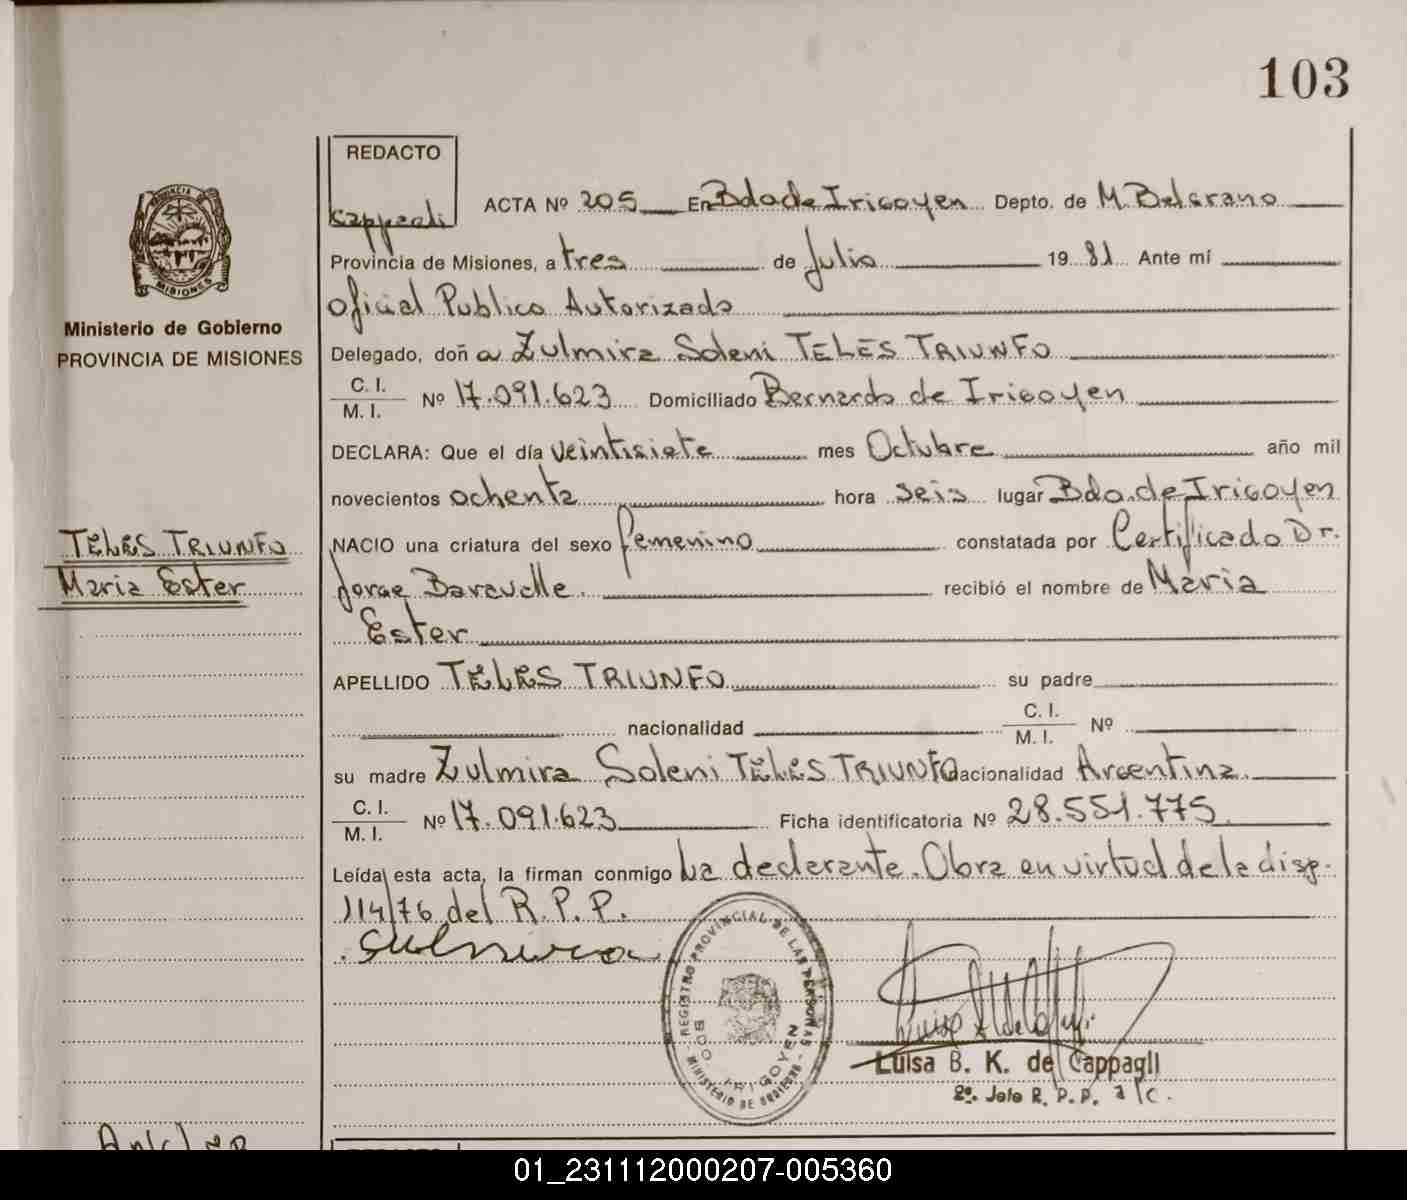 103
REDACTO
Cappagli
ACTA Nº 205 En Bdo de Irigoyen Depto. de M. Belgrano
Provincia de Misiones, a tres de Julio 19 81 Ante mí
Oficial Publico Autorizado
Delegado, doñ a Zulmira Soleni TELES TRIUNFO
C. I.
M. I. Nº 17.091.623 Domiciliado Bernardo de Irigoyen
DECLARA: Que el día veintisiete mes Octubre año mil
novecientos ochenta hora seis lugar Bdo. de Irigoyen
NACIO una criatura del sexo femenino constatada por Certificado Dr.
Jorge Baravalle. recibió el nombre de María
Ester
APELLIDO TELES TRIUNFO su padre
nacionalidad C. I.
M. I. Nº
su madre Zulmira Soleni TELES TRIUNFO nacionalidad Argentina.
C. I.
M. I. Nº 17.091.623 Ficha identificatoria Nº 28.551.775
Leída esta acta, la firman conmigo La declarante. Obra en virtud de la disp.
114/76 del R. P. P.
PROVINCIA DE
MISIONES
Ministerio de Gobierno
PROVINCIA DE MISIONES
TELES TRIUNFO
Maria Ester
REGISTRO PROVINCIAL DE LAS PERSONAS
BDO IRIGOYEN
MINISTERIO DE GOBIERNO
Luisa B. K. de Cappagli
2º. Jefe R. P. P. a/c.
REDACTO
01_231112000207-005360